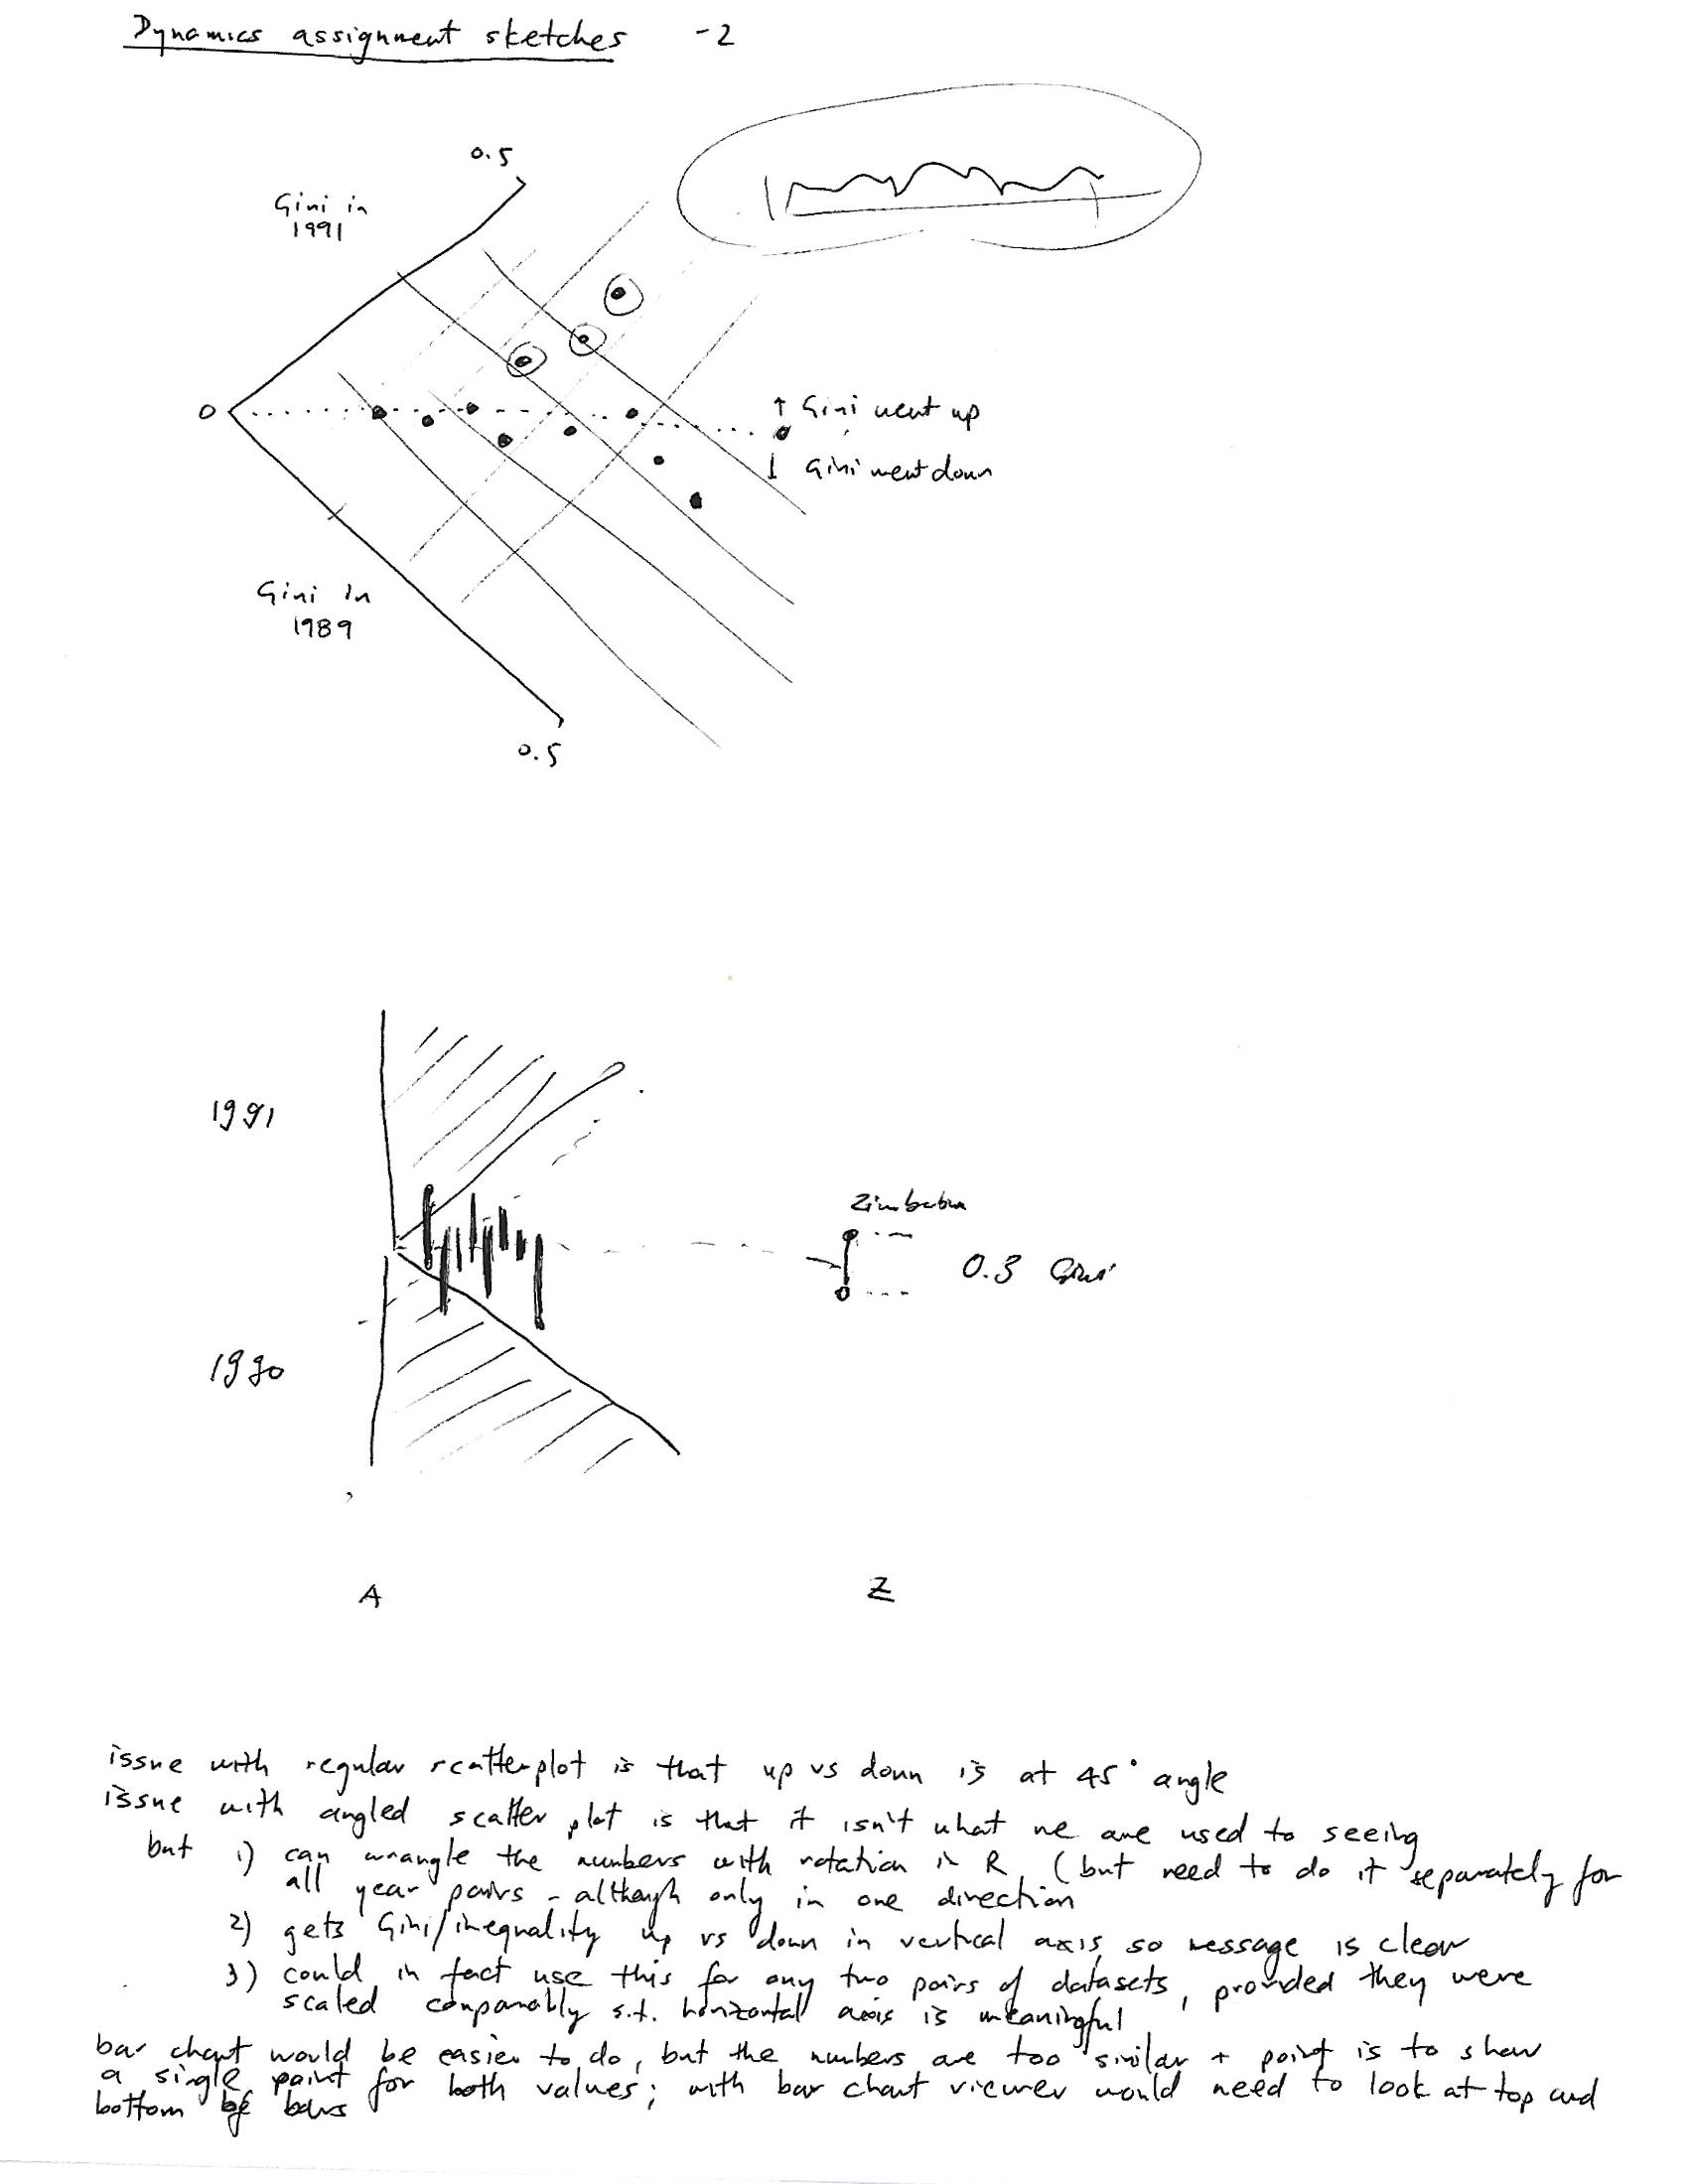 Dynamics assignment sketches -2
0.5
Gini in
1991
0
↑ Gini went up
↓ Gini went down
Gini in
1989
0.5
1991
Zimbabwe
0.3 Gini
1990
A Z
issue with regular scatterplot is that up vs down is at 45° angle
issue with angled scatter plot is that it isn't what we are used to seeing
but 1) can wrangle the numbers with rotation in R (but need to do it separately for
all year pairs - although only in one direction
2) gets Gini/inequality up vs down in vertical axis, so message is clear
3) could in fact use this for any two pairs of datasets, provided they were
scaled comparably s.t. horizontal axis is meaningful
bar chart would be easier to do, but the numbers are too similar + point is to show
a single point for both values; with bar chart viewer would need to look at top and
bottom of bars